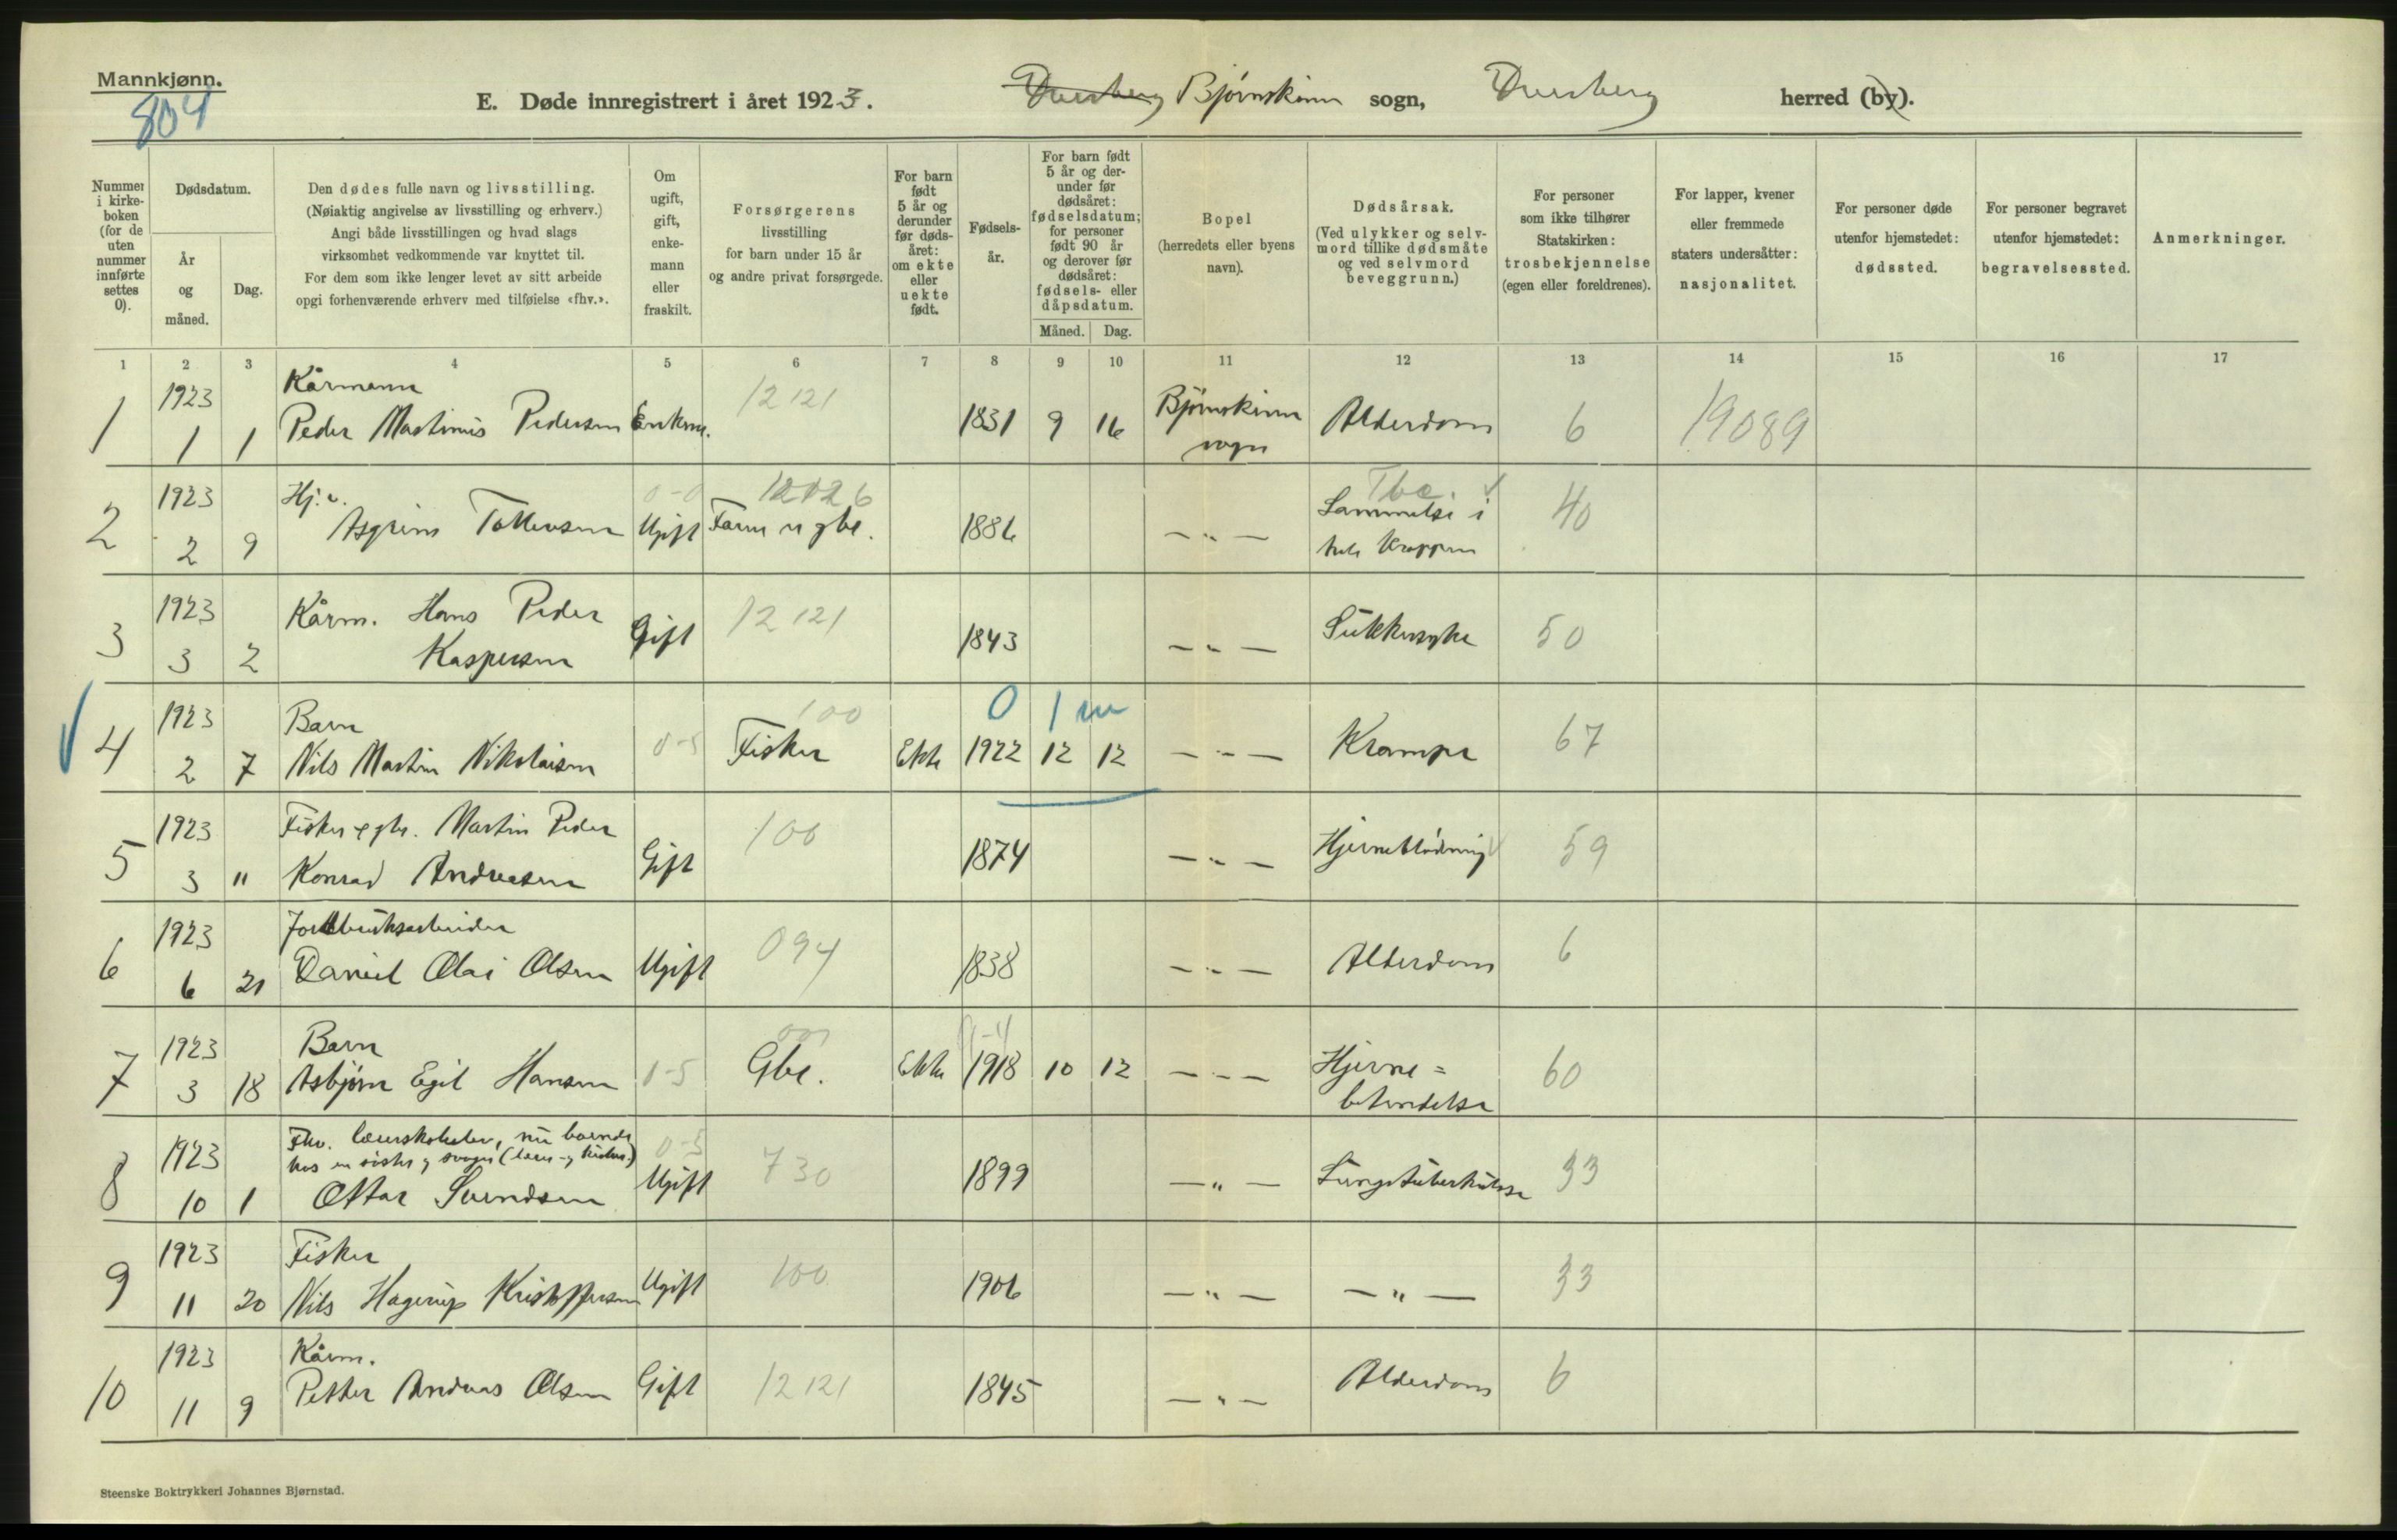 Mannkjønn.
804
E. Døde innregistrert i året 1923.
Dverberg Bjørnskinn sogn, Dverberg herred (by).
Nummer i kirke-boken (for de uten nummer innførte settes 0).
Dødsdatum.
År og måned.
Dag.
Den dødes fulle navn og livsstilling.
(Nøiaktig angivelse av livsstilling og erhverv.)
Angi både livsstillingen og hvad slags
virksomhet vedkommende var knyttet til.
For dem som ikke lenger levet av sitt arbeide
opgi forhenværende erhverv med tilføielse «fhv.».
Om ugift, gift, enke-mann eller fraskilt.
Forsørgerens
livsstilling
for barn under 15 år
og andre privat forsørgede.
For barn født 5 år og derunder før døds-året: om ekte eller uekte født.
Fødsels-år.
For barn født 5 år og der-under før dødsåret: fødselsdatum; for personer født 90 år og derover før dødsåret: fødsels- eller dåpsdatum.
Måned. Dag.
Bopel
(herredets eller byens
navn).
Dødsårsak.
(Ved ulykker og selv-
mord tillike dødsmåte
og ved selvmord
beveggrunn.)
For personer
som ikke tilhører
Statskirken:
trosbekjennelse
(egen eller foreldrenes).
For lapper, kvener
eller fremmede
staters undersåtter:
nasjonalitet.
For personer døde
utenfor hjemstedet:
dødssted.
For personer begravet
utenfor hjemstedet:
begravelsessted.
Anmerkninger.
1 2 3 4 5 6 7 8 9 10 11 12 13 14 15 16 17
1 1923 Kårmann 12121
1 1 Peder Martinus Pedersen Enkm. 1831 9 16 Bjørnskinn sogn Alderdom 6 19089
2 1923 Hj.v. 0-0 12026 Tbc.
2 9 Asgrim Tollevsen Ugift 1886 — " — Lammelse i hele kroppen 40
3 1923 Kårm. Hans Peder 12121
3 2 Kaspersen Gift 1843 — " — Sukkersyke 50
4 1923 Barn 100 0 1 m
2 7 Nils Martin Nikolaisen 0-5 Fisker Ekte 1922 12 12 — " — Krampe 67
5 1923 Fisker og gbr. Martin Peder 100
3 " Konrad Andreasen Gift 1874 — " — Hjerneblødning 59
6 1923 Jordbruksarbeider 094
6 21 Daniel Olai Olsen Ugift 1838 — " — Alderdom 6
7 1923 Barn 0-4
3 18 Asbjørn Egil Hansen 0-5 Gbr. Ekte 1918 10 12 — " — Hjerne=
betendelse 60
8 1923 Fhv. lærerskoleelev, nu boende
hos en søster og svoger (lærer- og kirkes.) 0-5
10 1 Ottar Svendsen Ugift 730 1899 — " — Lungetuberkulose 33
9 1923 Fisker
11 20 Nils Hagerup Kristoffersen Ugift 100 1906 — " — — " — 33
10 1923 Kårm.
11 9 Petter Andreas Olsen Gift 12121 1845 — " — Alderdom 6
Steenske Boktrykkeri Johannes Bjørnstad.